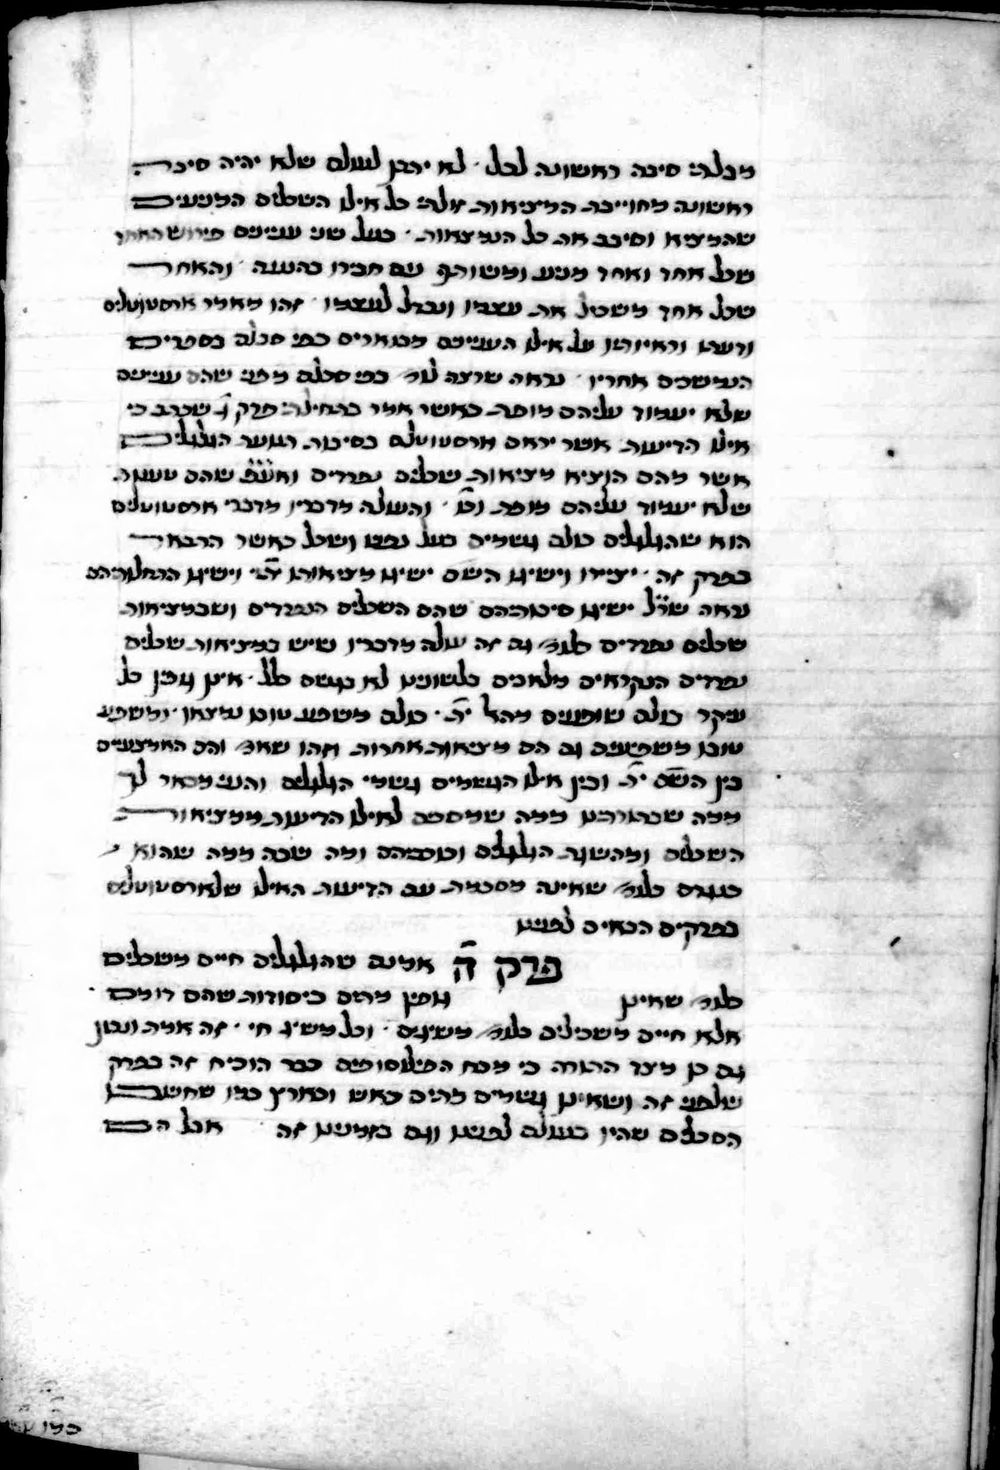 מבלתי סיבה ראשונה לכל · לא יתכן לעולם שלא יהיה סיבה
ראשונה מחוייבת המציאות זולתי כל אילו השכלים המניעים
שהמציא וסיבב את כל הנמצאות · בעל שני עניינים פירוש האחד
שכל אחד ואחד מניע ומשותף עם חבירו בהנעה · והאחר
שכל אחד משכיל את עצמו ונבדל לעצמו · זהו מאמר ארסטוטליס
ודעתו וראיותיו על אילו העניינים מבוארים כפי סבלם בספרים
הנמשכים אחריו · נראה שרצה לומ' כפי סבלם מפני שהם עניינים
שלא יעמוד עליהם מופת כאשר אמר בתחילת פרק ג' שכתב כי
אילו הדיעות אשר יראם ארסטוטלס בסיבות תנועת הגלגלים
אשר מהם הוציא מציאות שכלים נפרדים ואע"פ שהם טענות
שלא יעמוד עליהם מופת וכו' · והעולה מדבריו מדברי ארסטוטליס
הוא שהגלגלים כולם גשמים בעלי נפש ושכל כאשר התבאר
בפרק זה · יציירו וישיגו השם ישיגו מציאותו ית' וישיגו התחלותיהם
נראה שר"ל ישיגו סיבותיהם שהם השכלים הנפרדים ושבמציאות
שכלים נפרדים כלומ' גם זה עולה מדבריו שיש במציאות שכלים
נפרדים הנקראים מלאכים בלשונינו לא בגשם כלל · אינן גופן כל
עיקר כולם שופעים מהאל ית' · כולם משפע טובו נמצאו · ומשפע
טובו משפיעים גם הם מציאות אחרות וזהו שאמ' והם האמצעיים
בין השם ית' ובין אילו הגשמים גשמי הגלגלים והנני מבאר לך
ממה שבתורתינו ממה שמסכים לאילו הדיעות ממציאות
השכלים ומהשגת הגלגלים וכוכביהם ומה שבה ממה שהוא
כנגדם כלומ' שאינה מסכמת עם הדיעות האילו שלארסטוטליס
בפרקים הבאים לפנינו
פרק ה' אמנם שהגלגלים חיים משכילים
כלומ' שאינן גופין מתים כיסודות שהם דומם
אלא חיים משכילים כלומ' משיגים · וכל משיג חי · זה אמת ונכון
גם כן מצד התורה כי מכח הפילוסופים כבר הוכיח זה בפרק
שלפני זה ושאינן גשמים מתים כאש וכארץ כמו שחשבו
הסכלים שהיו בעולם לפנינו וגם בזמנינו זה אבל הם